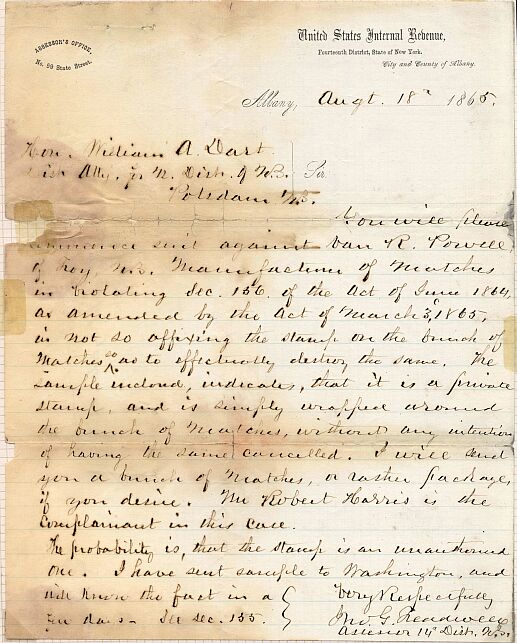 ASSESSOR'S OFFICE,
No. 99 State Street.
United States Internal Revenue,
Fourteenth District, State of New York.
City and County of Albany.
Albany, Augt. 18th 1865.
Hon. William A. Dart
Dist Atty. for N. Dist. of N.Y. Sir
Potsdam N.Y.
You will please
commence suit against Van R. Powell,
of Troy, N.Y. Manufacturer of Matches
in violating Sec. 156. of the Act of June 1864,
as amended by the Act of March 3, 1865,
in not so affixing the stamp on the bunch of
Matches so as to effectually destroy the same. The
sample inclosed, indicates, that it is a private
stamp, and is simply wrapped around
the bunch of Matches, without any intention
of having the same cancelled. I will send
you a bunch of Matches, or rather package
if you desire. Mr Robert Harris is the
Complainant in this case.
The probability is, that the stamp is an unauthorized
one. I have sent sample to Washington, and
will know the fact in a
few days - See sec. 155.
Very Respectfully
Jno. G. Treadwell
Assessor 14th Dist. N.Y.